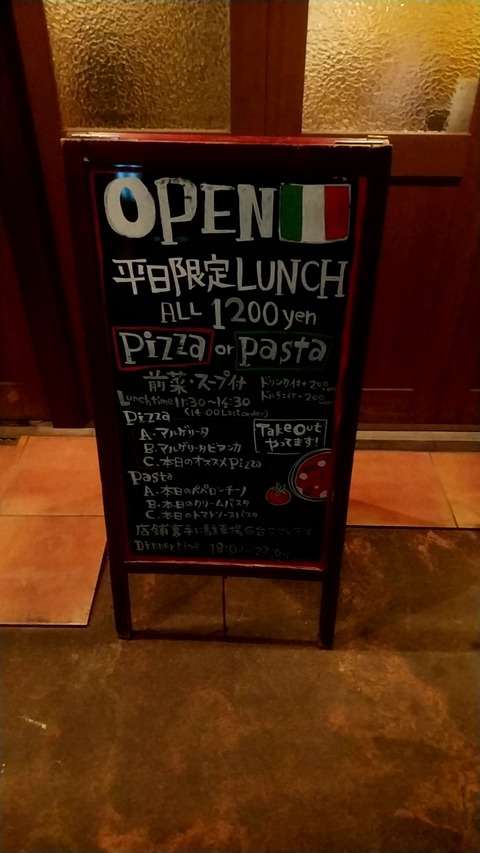 OPEN
平日限定LUNCH
ALL 1200yen
pizza or pasta
前菜・スープ付
ドリンク付+200yen
ドルチェ付+200yen
Lunchtime 11:30~14:30
(14:00 Last order)
Pizza
A.マルゲリータ
B.マルゲリータビアンカ
C.本日のオススメpizza
TakeOut
やってます!
Pasta
A.本日のペペロンチーノ
B.本日のクリームパスタ
C.本日のトマトソースパスタ
店舗裏手に駐車場6台ございます
Dinnertime 18:00~